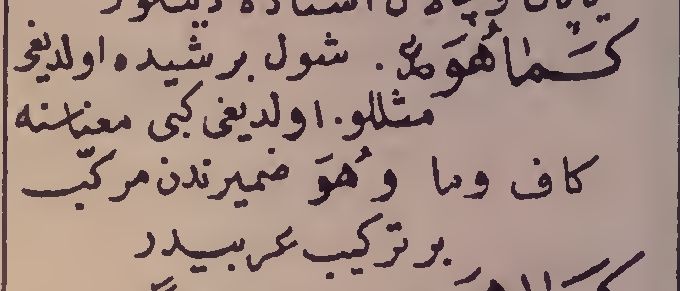 كَمَا هُوَ . شول بر شيده اولديغى
مثللو . اولديغى كبى معناسنه
كاف وما وهُوَ ضميرندن مركّب
بر تركيب عربيدر